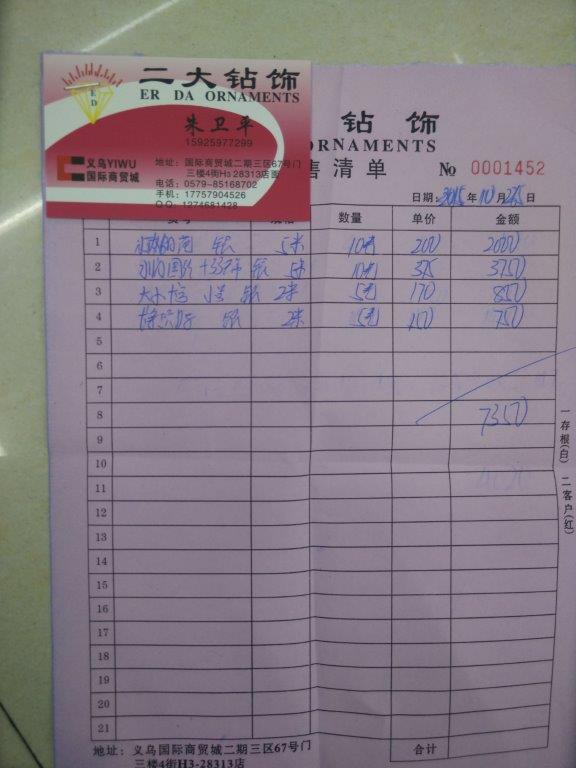 二大钻饰
ER DA ORNAMENTS
朱卫平
15925977299
义乌YIWU
国际商贸城
地址：国际商贸城二期三区67号门
三楼4街H3 28313店面
电话：0579-85168702
手机：17757904526
QQ：1274681428
钻饰
ORNAMENTS
售清单 No 0001452
日期：2015年10月25日
数量 单价 金额
1 钻 5米 200 2000
2 钻 5米 375 3750
3 钻 2米 170 850
4 钻 2米 150 750
5
6
7
8 7350
9
10
11
12
13
14
15
16
17
18
19
20
21
合计
一存根(白) 二客户(红)
地址：义乌国际商贸城二期三区67号门
三楼4街H3-28313店